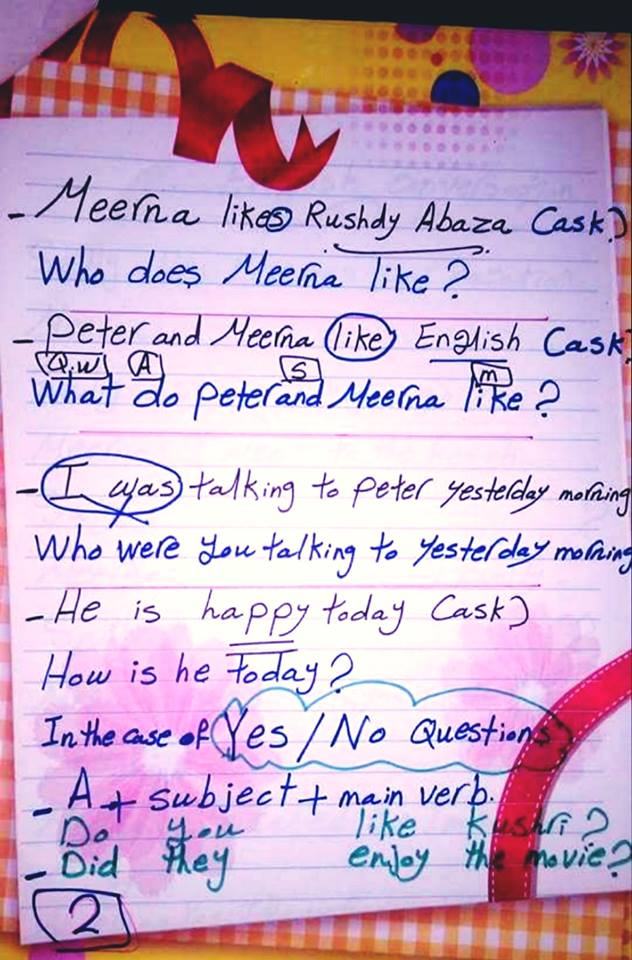 - Meerna likes Rushdy Abaza Cask)
Who does Meerna like?
- Peter and Meerna like English Cask)
Q.W A S m
What do Peter and Meerna like?
- I was talking to Peter yesterday morning
Who were you talking to yesterday morning
- He is happy today Cask)
How is he today?
In the case of Yes / No Questions
- A + subject + main verb.
Do you like Kushri?
- Did they enjoy the movie?
2